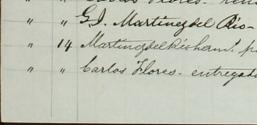 " " G.I. Martinez del Rio-
" 14 Martinez del Rio ham!
" " Carlos Flores - entregado